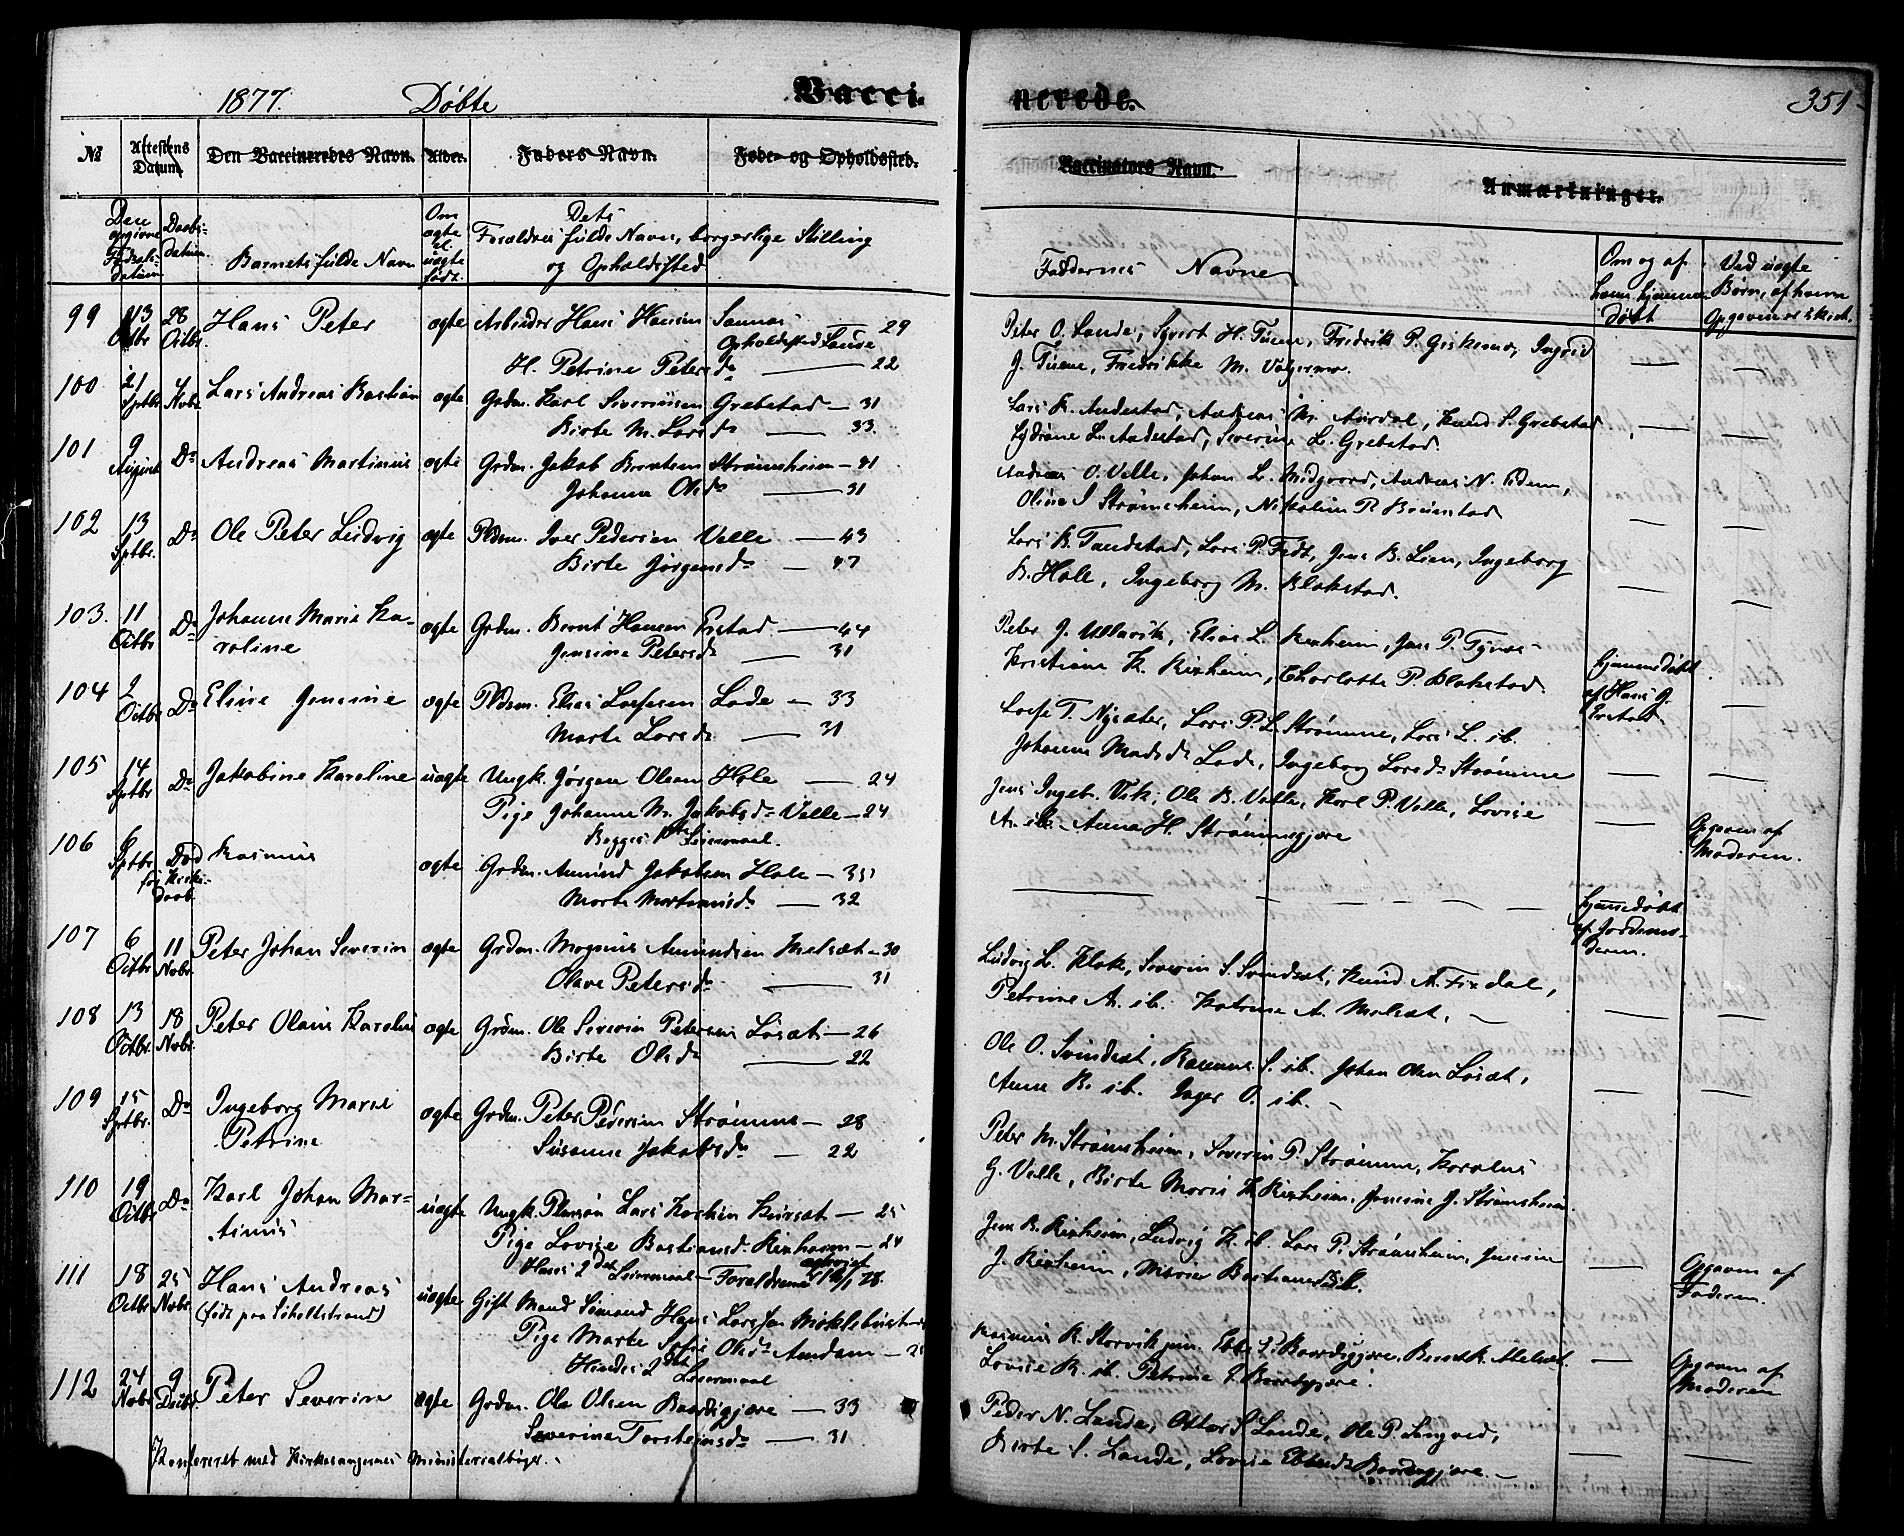 1877. Døbte Vacci-
nerede. 351
№ Attestens Datum. Den Vaccineredes Navn. Alder. Faders Navn. Føde- og Opholdssted.
Vaccinators Navn. Anmærkninger.
Den opgivne Fødselsdatum Daabsdatum. Barnets fulde Navn Om ægte el. uægte født. Dets Forældres fulde Navn, borgerlige Stilling og Opholdssted
Faddernes Navne Om og af hvem hjemmedøbt Ved uægte Børn, af hvem Opgaven er skeet.
99 13 Octbr 28 Octbr. Hans Peter ægte Arbeider Hans Hansen Sannes
Opholdssted Lande 29
H. Petrine Petersdr 22
Peter O. Lande, Sivert H. Tuene, Fredrik P. Giskemo, Ingrid
J. Tuene, Fredrikke M.
100 21 Sptbr 4 Novbr. Lars Andreas Bastian ægte Grdm. Karl Seversen Grebstad — 31
Birte M. Larsdr — 33.
Lars K. Andestad, Andreas M. Aurdal, Knud S. Grebstad
L. Andestad, Severine L. Grebstad.
101 9 August Do Andreas Martinus ægte Grdm. Jakob Berntsen Strømsheim — 41
Johanne Olsdr — 31
Andreas O. Velle, Johan L. Midgaard, Andreas N.
Oline J Strømsheim, Nikoline P.
102 13 Sptbr. Do Ole Peter Ludvig ægte Pldsm. Iver Pedersen Velle — 43
Birte Jørgensdr — 47
Lars B. Tandstad, Lars P. Fedt, Jens B. Lien, Ingeborg
B. Hole, Ingeborg M. Blakstad.
103. 11 Octbr Do Johanne Marie Ka-
roline ægte Grdm. Bernt Hansen Erstad — 44
Jensine Petersdr — 31
Peter J. Ullavik, Elias L. Rexheim, Jens P. Tynes
Kristiane K. Rexheim, Charlotte P. Blakstad.
hjemmedøbt
af Hans J.
Erstad.
104 2 Octbr Do Eline Jensine ægte Pldsm. Elias Larsen Lade — 33
Marte Larsdr — 31
T. Nysæter, Lars P. L. Strømme, Lars L. ib.
Johanne Madsdr Lade, Ingeborg Larsdr Strømme
105 14 Sptbr Do Jakobine Karoline uægte Ungk. Jørgen Olsen Hole — 24
Pige Johanne M. Jakobsdr Velle — 24
Begges 1ste Leiermaal.
Jens Ingebr. Vik, Ole B. Velle, Karl P. Velle, Lovise
A. ib. Anna H. Strømmegjære
Opgaven af
Moderen.
106 Sptbr Død
før Kirke-
daab. Rasmus ægte Grdm. Amund Jakobsen Hole — 35
Marte Martinusdr — 32
hjemmedøbt
af Jordemo-
deren.
107 6 Octbr 11 Novbr. Peter Johan Severin ægte Grdm. Magnus Amundsen Melsæt — 30
Olave Petersdr — 31
Ludvig L. Klok, Severin S. Svindset, Knud A. Fixdal,
Petrine A. ib. Katrine A. Melsæt.
108 13 Octbr. 18 Novbr. Peter Olaus Karolus ægte Grdm. Ole Severin Petersen Løsæt — 26
Birte Olsdr — 22
Ole O. Svindset, Rasmus S. ib. Johan Olsen Løsæt,
Anne B. ib. Inger O. ib.
109 15 Sptbr. Do Ingeborg Marie
Petrine ægte Grdm. Peter Pedersen Strømme — 28
Susanne Jakobsdr — 22
Peter M. Strømsheim, Severin P. Strømme, Karolus
G. Velle, Birte Marie K. Rexheim, Jensine J. Strømsheim
110 19 Octbr Do Karl Johan Mar-
tinus uægte Ungk. Lars Karlsen — 25
Pige Lovise Bastiansdr Rexheim — 24
Hans 2det Leiermaal — Forældrene
Jens B. Rexheim, Ludvig K. ib. Lars P. Strømsheim, Jensine
J. Rexheim, Marie Bastiansdr ib.
Opgaven af
Faderen.
111 18 Octbr 25 Novbr. Hans Andreas
(født paa Sjøholtstrand) uægte Gift Mand Sømand Hans Larssen Møklebust
Pige Marte Sofie Olsdr Amdam
Hendes 2det Leiermaal
Rasmus R. Storvik jun. S. Baardsgjære, Bernt K. Melsæt
Lovise R. ib. Petrine S. Baardsgjære.
Opgaven af
Moderen
112 24 Novbr 9 Decbr. Peter Severin ægte Grdm. Ole Olsen Baardsgjære — 33
Severine Torsteinsdr — 31
Peder N. Lande, Ottar S. Lande, Ole P. Langved,
Birte S. Lande, Lovise Baardsgjære.
Konfereret med Kirkesangerens Ministerialbog.